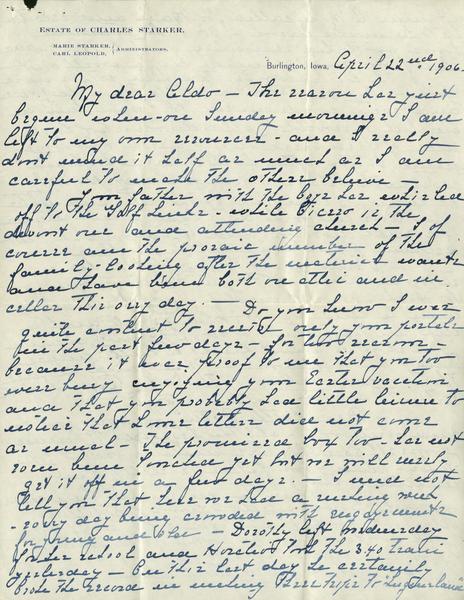 ESTATE OF CHARLES STARKER,
MARIE STARKER,
CARL LEOPOLD, } ADMINISTRATORS.
Burlington, Iowa, April 22nd 1906.
My dear Aldo — The reason has just
begun when on Sunday mornings I am
left to my own resources — and I really
don't mind it half as much as I am
careful to make the others believe —
Your father with the boys has whirled
off to the Golf Links — while is the
devout one and attending church — I of
course am the prosaic member of the
family — looking after the material wants
and have been both in attic and in
cellar this very day. — Do you know I was
quite content to receive only your postals
in the past few days — for two reasons —
because it was proof to me that you too
were busy enjoying your Easter vacation
and that you probably had little leisure to
notice that home letters did not come
as much — The promised box too — has not
even been touched yet but we will surely
get it off in a few days. — I need not
tell you that here we had a rushing week
every day being crowded with engagements
for young and old — Dorothy left Wednesday
for her school and took the 3.40 train
yesterday — But in his last day he certainly
broke the record in making trips to